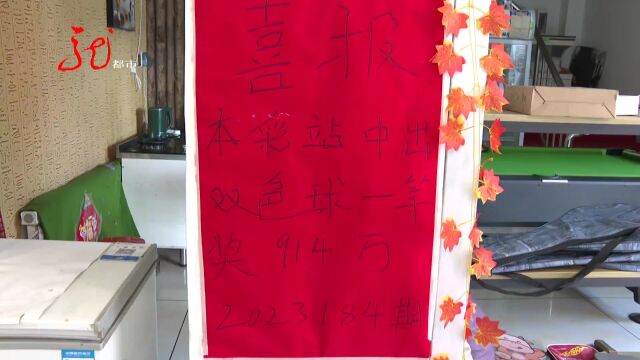 龙
都市
喜报
本彩站中出
双色球一等
奖914万
2023184期